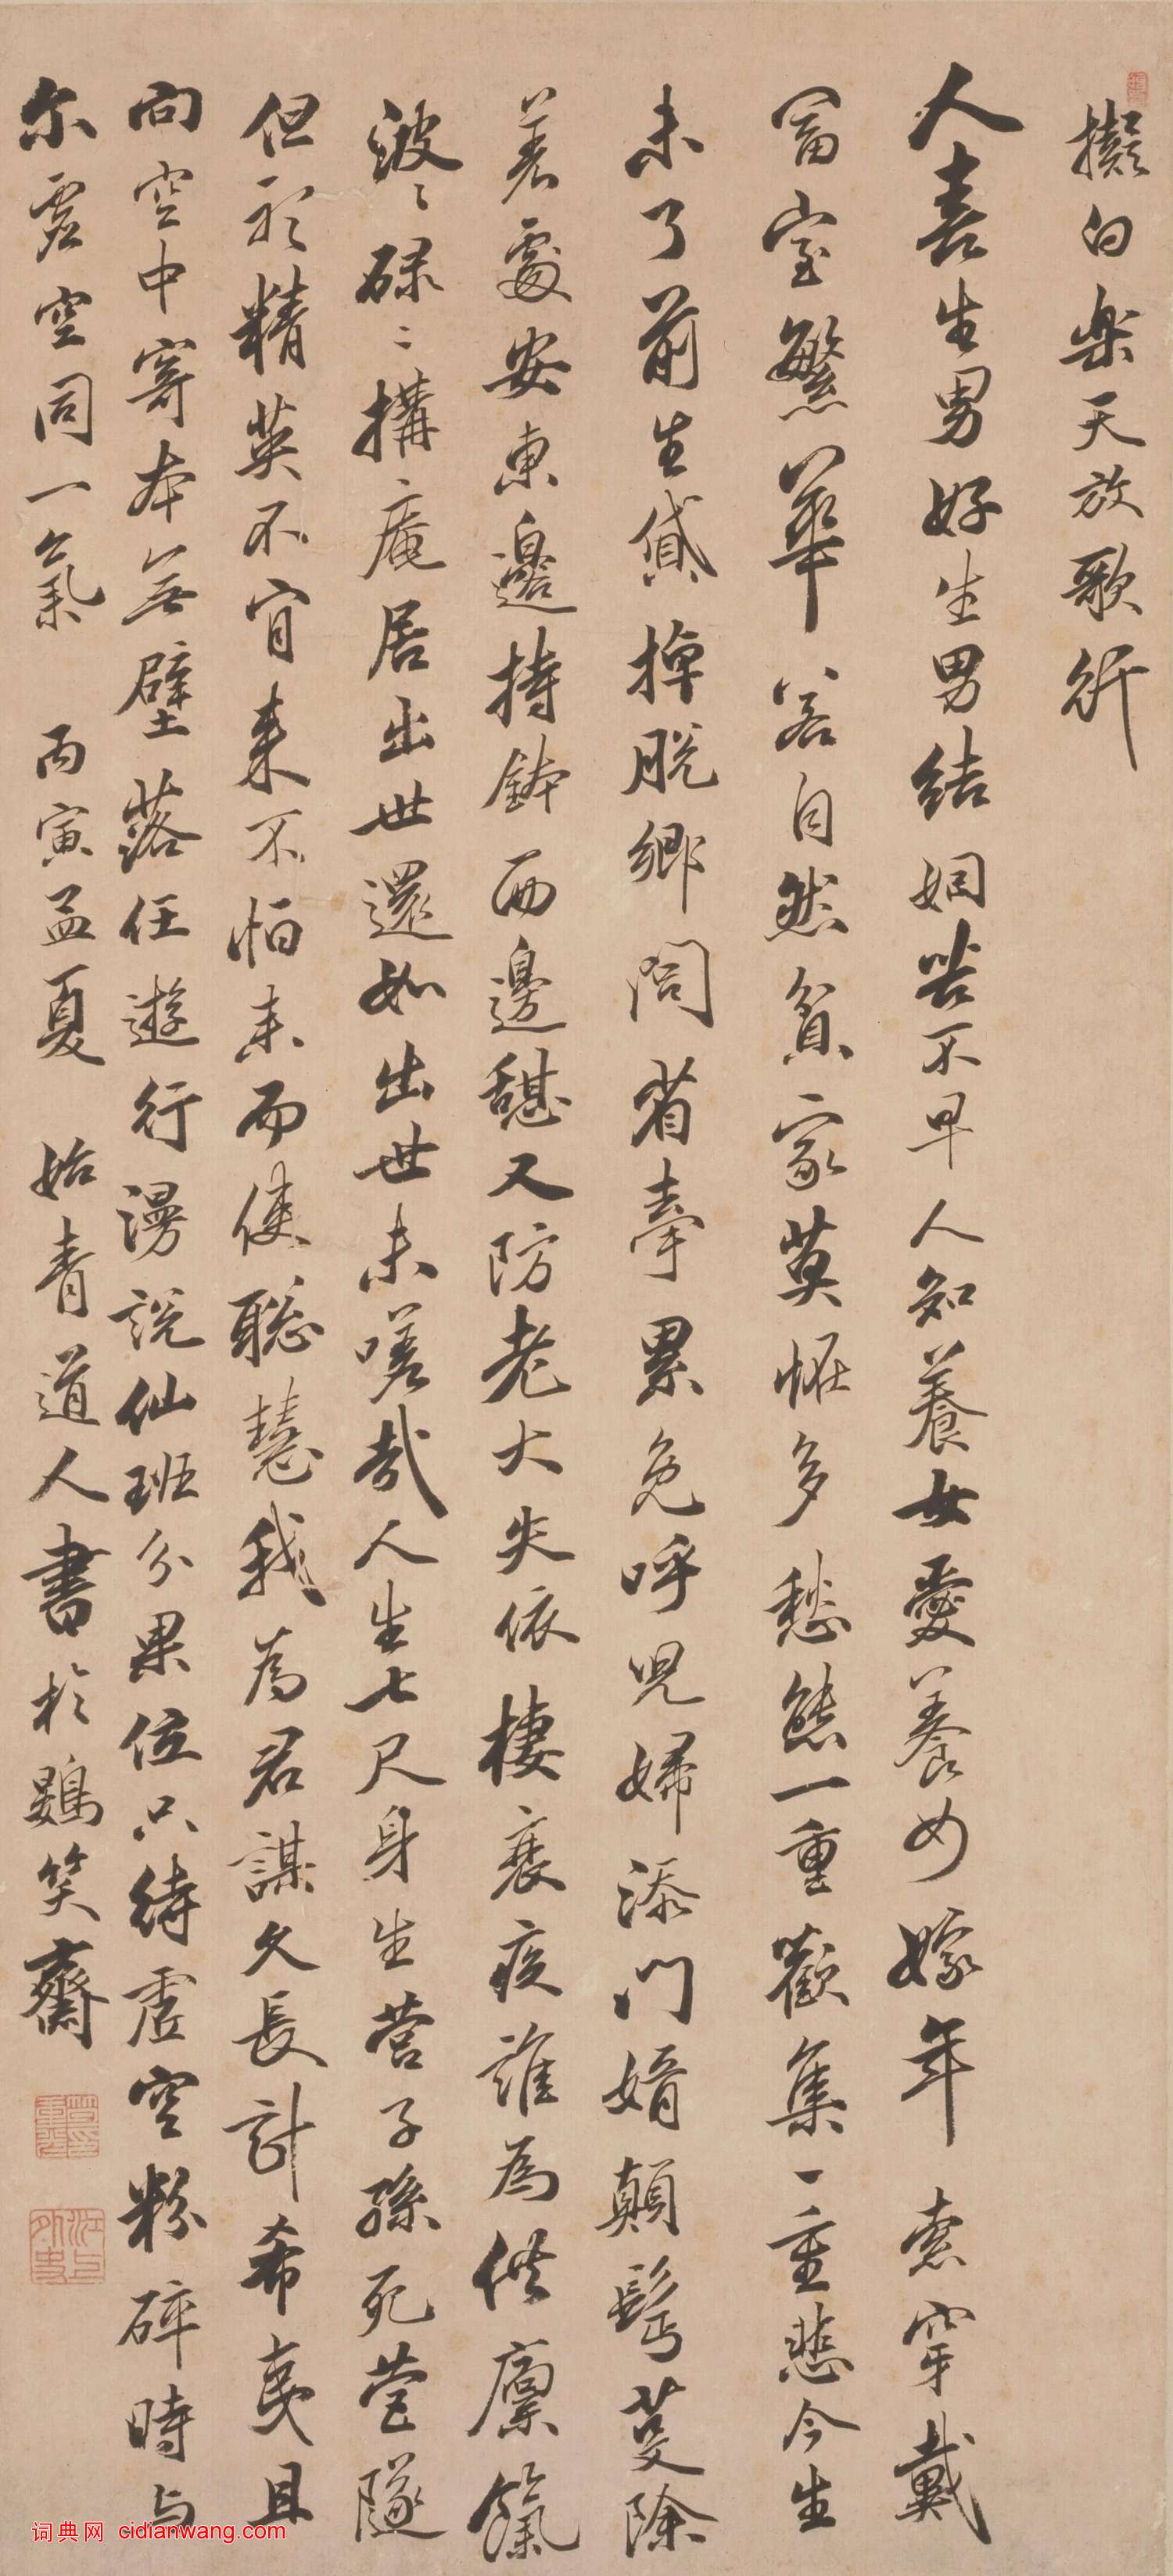 擬白楽天放歌行
人喜生男好生男結姻苦不早人知養女愛養女嫁年索穿戴
富室繁華若自然貧家莫怪多愁態一重歡集一重悲今生
未了前生貸掉脫鄉閭省牽累免呼兒婦添門婿顛髩芟除
着處安東邊持鉢西邊憇又防老大失依棲衰疾誰為供廪餼
波〻碌〻構庵居出世還如出世未嗟哉人生七尺身生营子孫死营隧
但於精英不肎来不怕未而使聡慧我為君謀久長計希夷且
向空中寄本無壁落任遊行漫說仙班分果位只待虚空粉碎時与
尔虚空同一氣 丙寅孟夏 始青道人書於鷃笑齋
笪重光印
江上外史
词典网 cidianwang.com